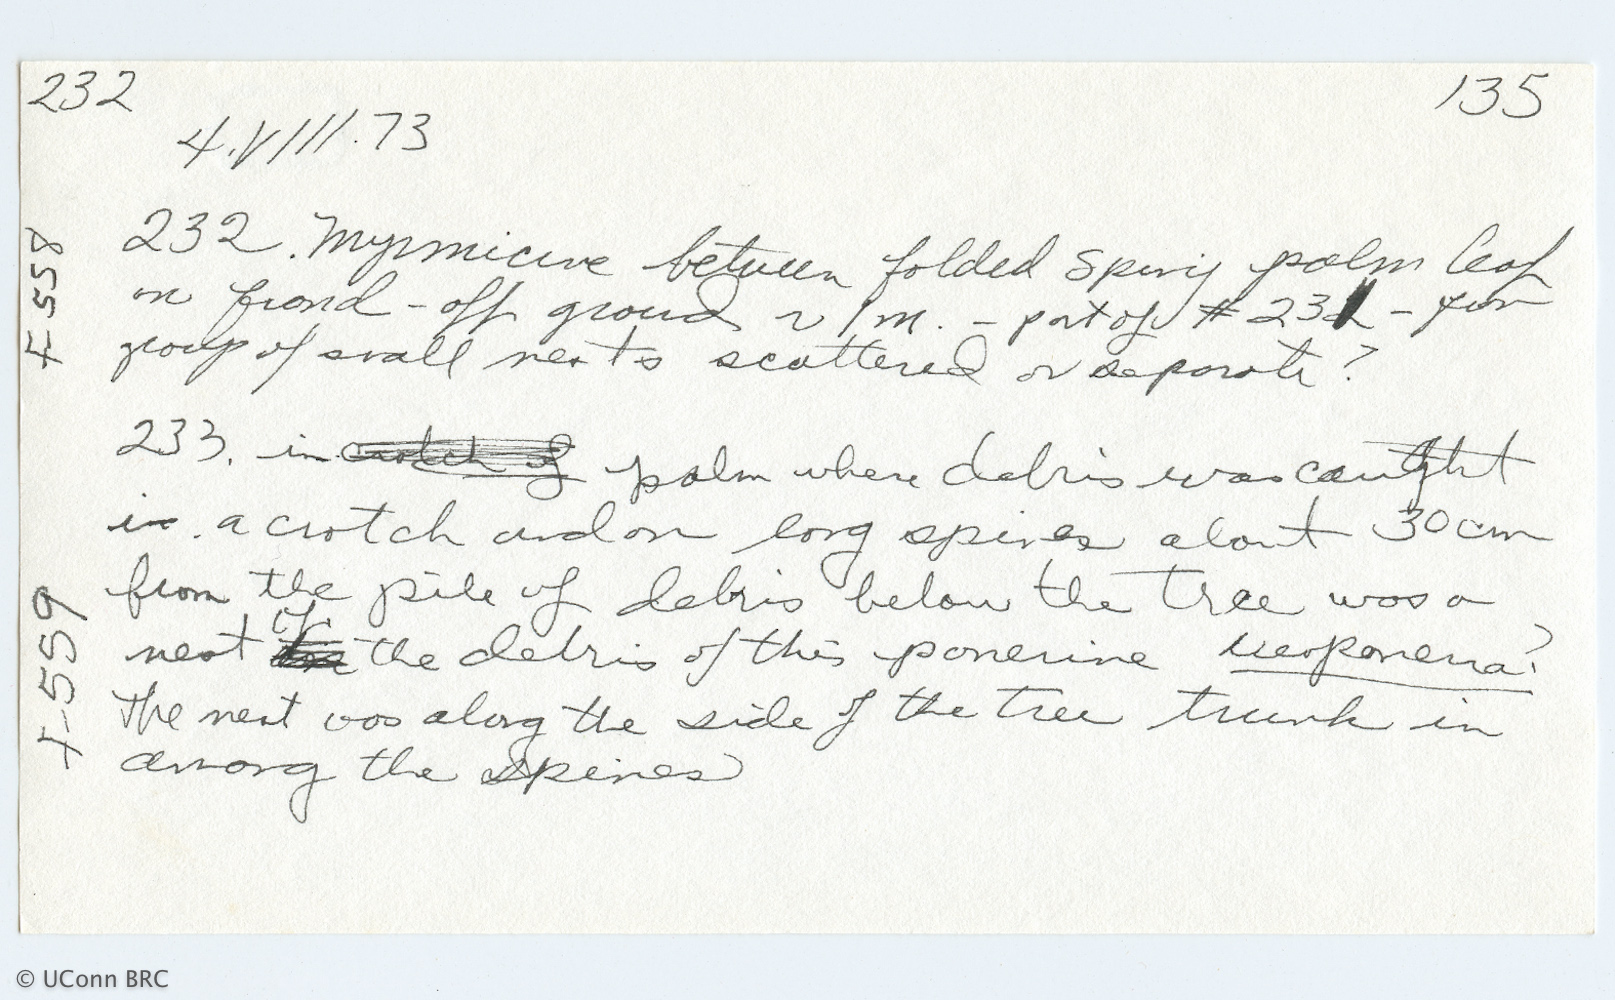 232
135
4.VIII.73
232. Myrmicine between folded spiny palm leaf
on frond - off ground ~ 1 m. - part of # 231 -
group of small nests scattered or separate?
233. in palm where debris was caught
in a crotch and on long spines about 30 cm
from the pile of debris below the tree was a
nest if the debris of this ponerine Neoponera?
The nest was along the side of the tree trunk in
among the spines
F558
F-559
© UConn BRC